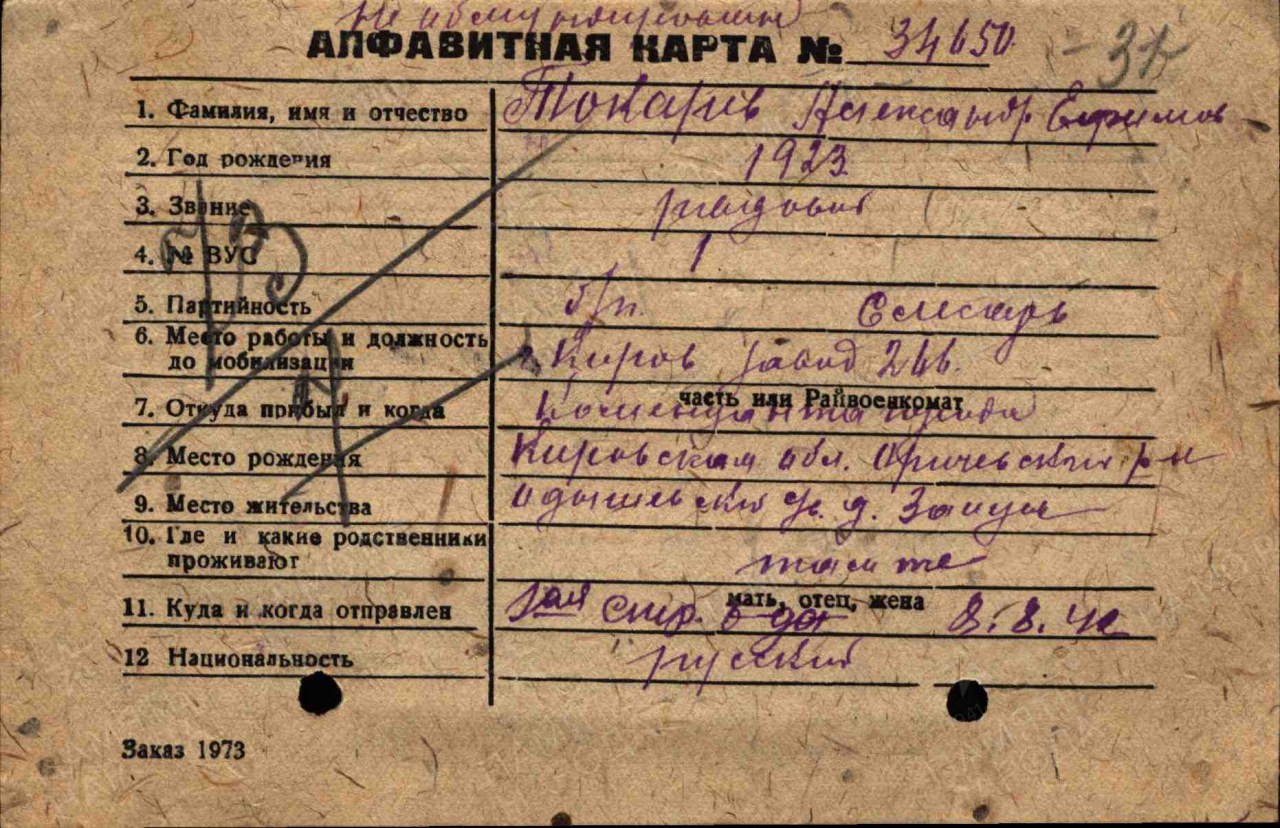 Не обмундирован
АЛФАВИТНАЯ КАРТА № 34650
1. Фамилия, имя и отчество Токарев Александр Ефимов
2. Год рождения 1923
3. Звание рядовой
4. № ВУС 1
5. Партийность б/п. Слесарь
6. Место работы и должность до мобилизации г. Киров завод 266.
7. Откуда прибыл и когда Коменданта города
часть или Райвоенкомат
8. Место рождения Кировская обл. Оричевский р-н
9. Место жительства с. д. Зайцы
10. Где и какие родственники проживают там же
мать, отец, жена
11. Куда и когда отправлен стр. 8.8.42
12 Национальность русский
Заказ 1973